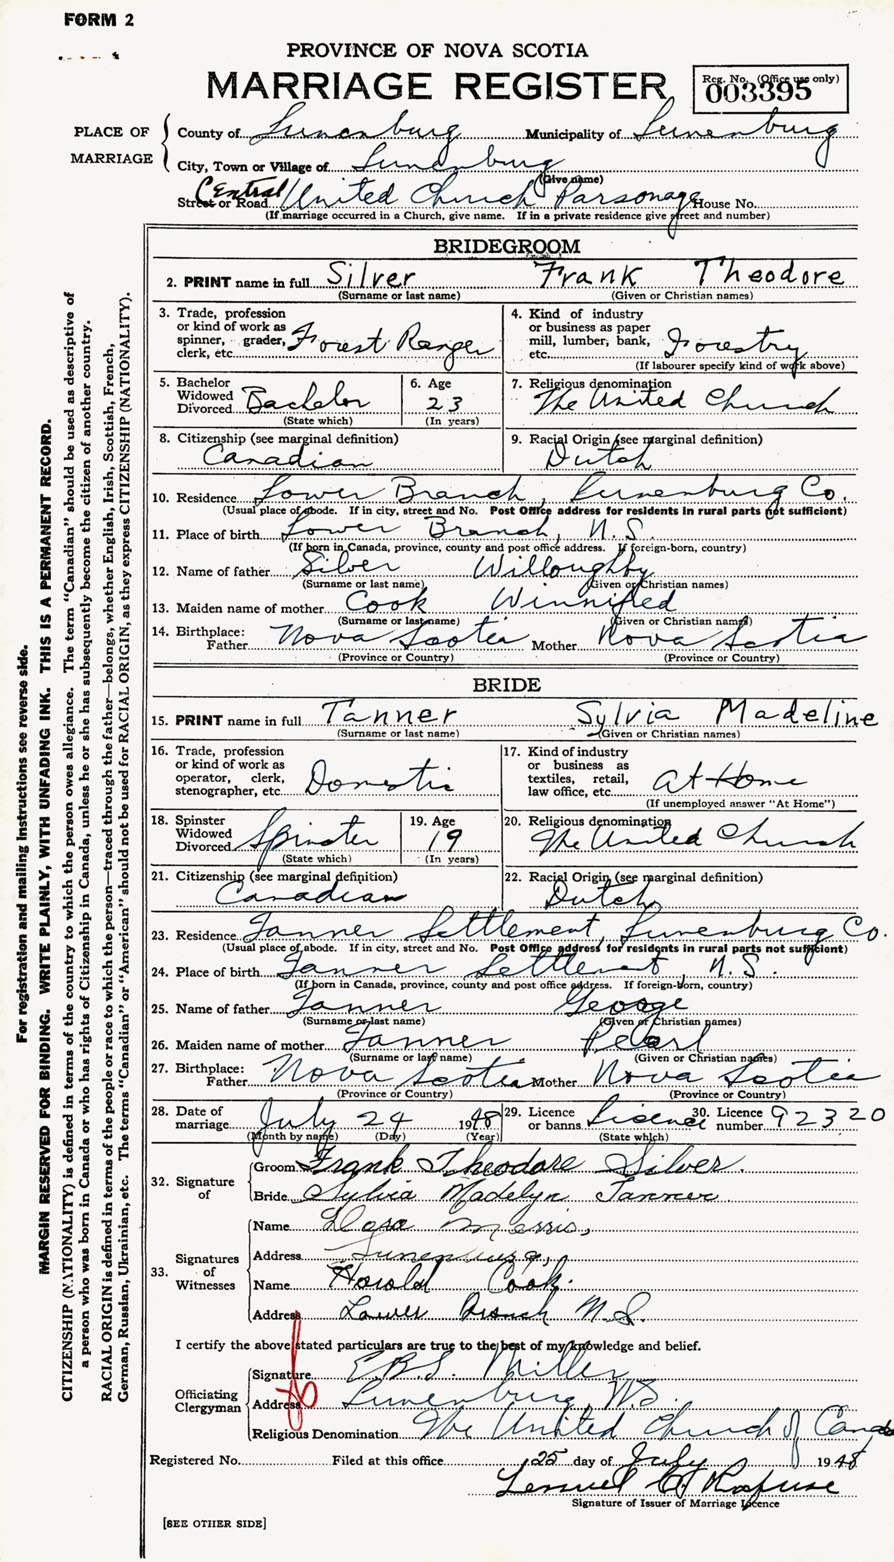 FORM 2
PROVINCE OF NOVA SCOTIA
MARRIAGE REGISTER
Reg. No. (Office use only)
003395
PLACE OF MARRIAGE
County of Lunenburg Municipality of Lunenburg
City, Town or Village of Lunenburg
(Give name)
Street or Road Central United Church Parsonage House No.
(If marriage occurred in a Church, give name. If in a private residence give street and number)
BRIDEGROOM
2. PRINT name in full Silver Frank Theodore
(Surname or last name) (Given or Christian names)
3. Trade, profession or kind of work as spinner, grader, clerk, etc. Forest Ranger
4. Kind of industry or business as paper mill, lumber, bank, etc. Forestry
(If labourer specify kind of work above)
5. Bachelor Widowed Divorced Bachelor
(State which)
6. Age 23
(In years)
7. Religious denomination The United Church
8. Citizenship (see marginal definition) Canadian
9. Racial Origin (see marginal definition) Dutch
10. Residence Lower Branch, Lunenburg Co.
(Usual place of abode. If in city, street and No. Post Office address for residents in rural parts not sufficient)
11. Place of birth Lower Branch, N.S.
(If born in Canada, province, county and post office address. If foreign-born, country)
12. Name of father Silver Willoughby
(Surname or last name) (Given or Christian names)
13. Maiden name of mother Cook Winnifred
(Surname or last name) (Given or Christian names)
14. Birthplace: Father Nova Scotia Mother Nova Scotia
(Province or Country) (Province or Country)
BRIDE
15. PRINT name in full Tanner Sylvia Madeline
(Surname or last name) (Given or Christian names)
16. Trade, profession or kind of work as operator, clerk, stenographer, etc. Domestic
17. Kind of industry or business as textiles, retail, law office, etc. At Home
(If unemployed answer "At Home")
18. Spinster Widowed Divorced Spinster
(State which)
19. Age 19
(In years)
20. Religious denomination The United Church
21. Citizenship (see marginal definition) Canadian
22. Racial Origin (see marginal definition) Dutch
23. Residence Tanner Settlement, Lunenburg Co.
(Usual place of abode. If in city, street and No. Post Office address for residents in rural parts not sufficient)
24. Place of birth Tanner Settlement, N.S.
(If born in Canada, province, county and post office address. If foreign-born, country)
25. Name of father Tanner George
(Surname or last name) (Given or Christian names)
26. Maiden name of mother Tanner Pearl
(Surname or last name) (Given or Christian names)
27. Birthplace: Father Nova Scotia Mother Nova Scotia
(Province or Country) (Province or Country)
28. Date of marriage July 24 1948
(Month by name) (Day) (Year)
29. Licence or banns Lisence
(State which)
30. Licence number 92320
32. Signature of
Groom Frank Theodore Silver.
Bride Sylvia Madelyn Tanner
33. Signatures of Witnesses
Name Morris,
Address Lunenburg,
Name Harold Cook.
Address Lower Branch N.S.
I certify the above stated particulars are true to the best of my knowledge and belief.
Officiating Clergyman
Signature E.B.S. Miller
Address Lunenburg, N.S.
Religious Denomination The United Church of Canada
Registered No. Filed at this office 25 day of July 1948
Lemuel
Signature of Issuer of Marriage Licence
[SEE OTHER SIDE]
For registration and mailing instructions see reverse side.
MARGIN RESERVED FOR BINDING. WRITE PLAINLY, WITH UNFADING INK. THIS IS A PERMANENT RECORD.
CITIZENSHIP (NATIONALITY) is defined in terms of the country to which the person owes allegiance. The term "Canadian" should be used as descriptive of
a person who was born in Canada or who has rights of Citizenship in Canada, unless he or she has subsequently become the citizen of another country.
RACIAL ORIGIN is defined in terms of the people or race to which the person—traced through the father—belongs, whether English, Irish, Scottish, French,
German, Russian, Ukrainian, etc. The terms "Canadian" or "American" should not be used for RACIAL ORIGIN, as they express CITIZENSHIP (NATIONALITY).